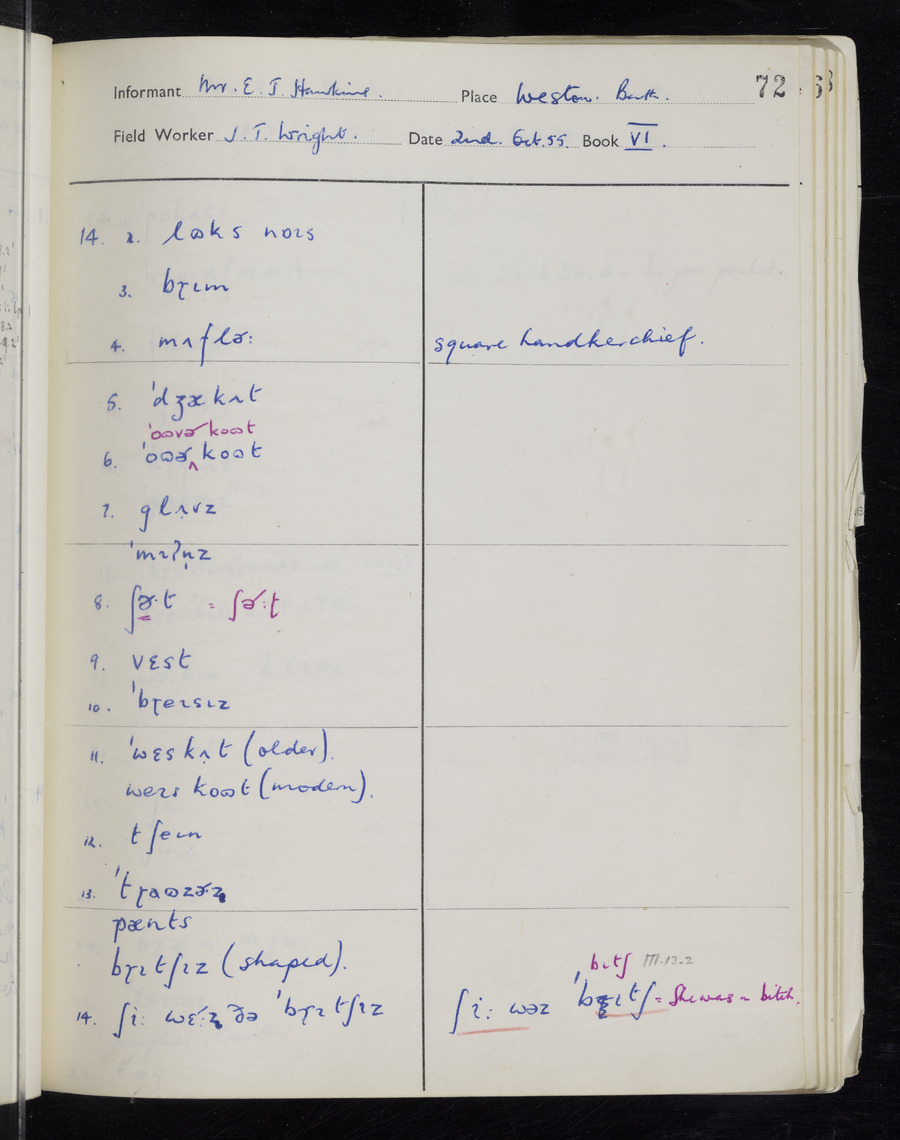 Informant Mr. E. T. Hawkins. Place Weston. Bath. 72
Field Worker J. T. Wright. Date 2nd. Oct. 55. Book VI.
14. 2. lɷks nɒɪs
3. bɽɪm
4. mʌflɚ: square handkerchief.
5. ˈdʒækʌt
ˈoɷvɚkoɷt
6. ˈoɷɚ‸koɷt
7. glʌvz
ˈmɪʔn̩z
8. ʃɚ·t = ʃɚ:ʈ
9. vɛst
10. ˈbɽeɪsɪz
11. ˈwɛskʌt (older).
weɪskoɷt (modern).
12. tʃeɪn
13. ˈtɽaɷzɚz
pænts
bɽɪtʃɪz (shaped).
bɪtʃ III.13.2
14. ʃi: wɛɚz ðə ˈbɽɪtʃɪz ʃi: wəz ˈbɽɪtʃ = She was a bitch.